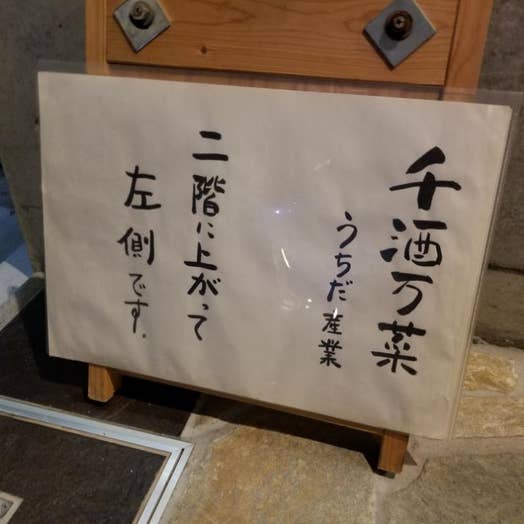 千酒万菜
うちだ産業
二階に上がって
左側です.